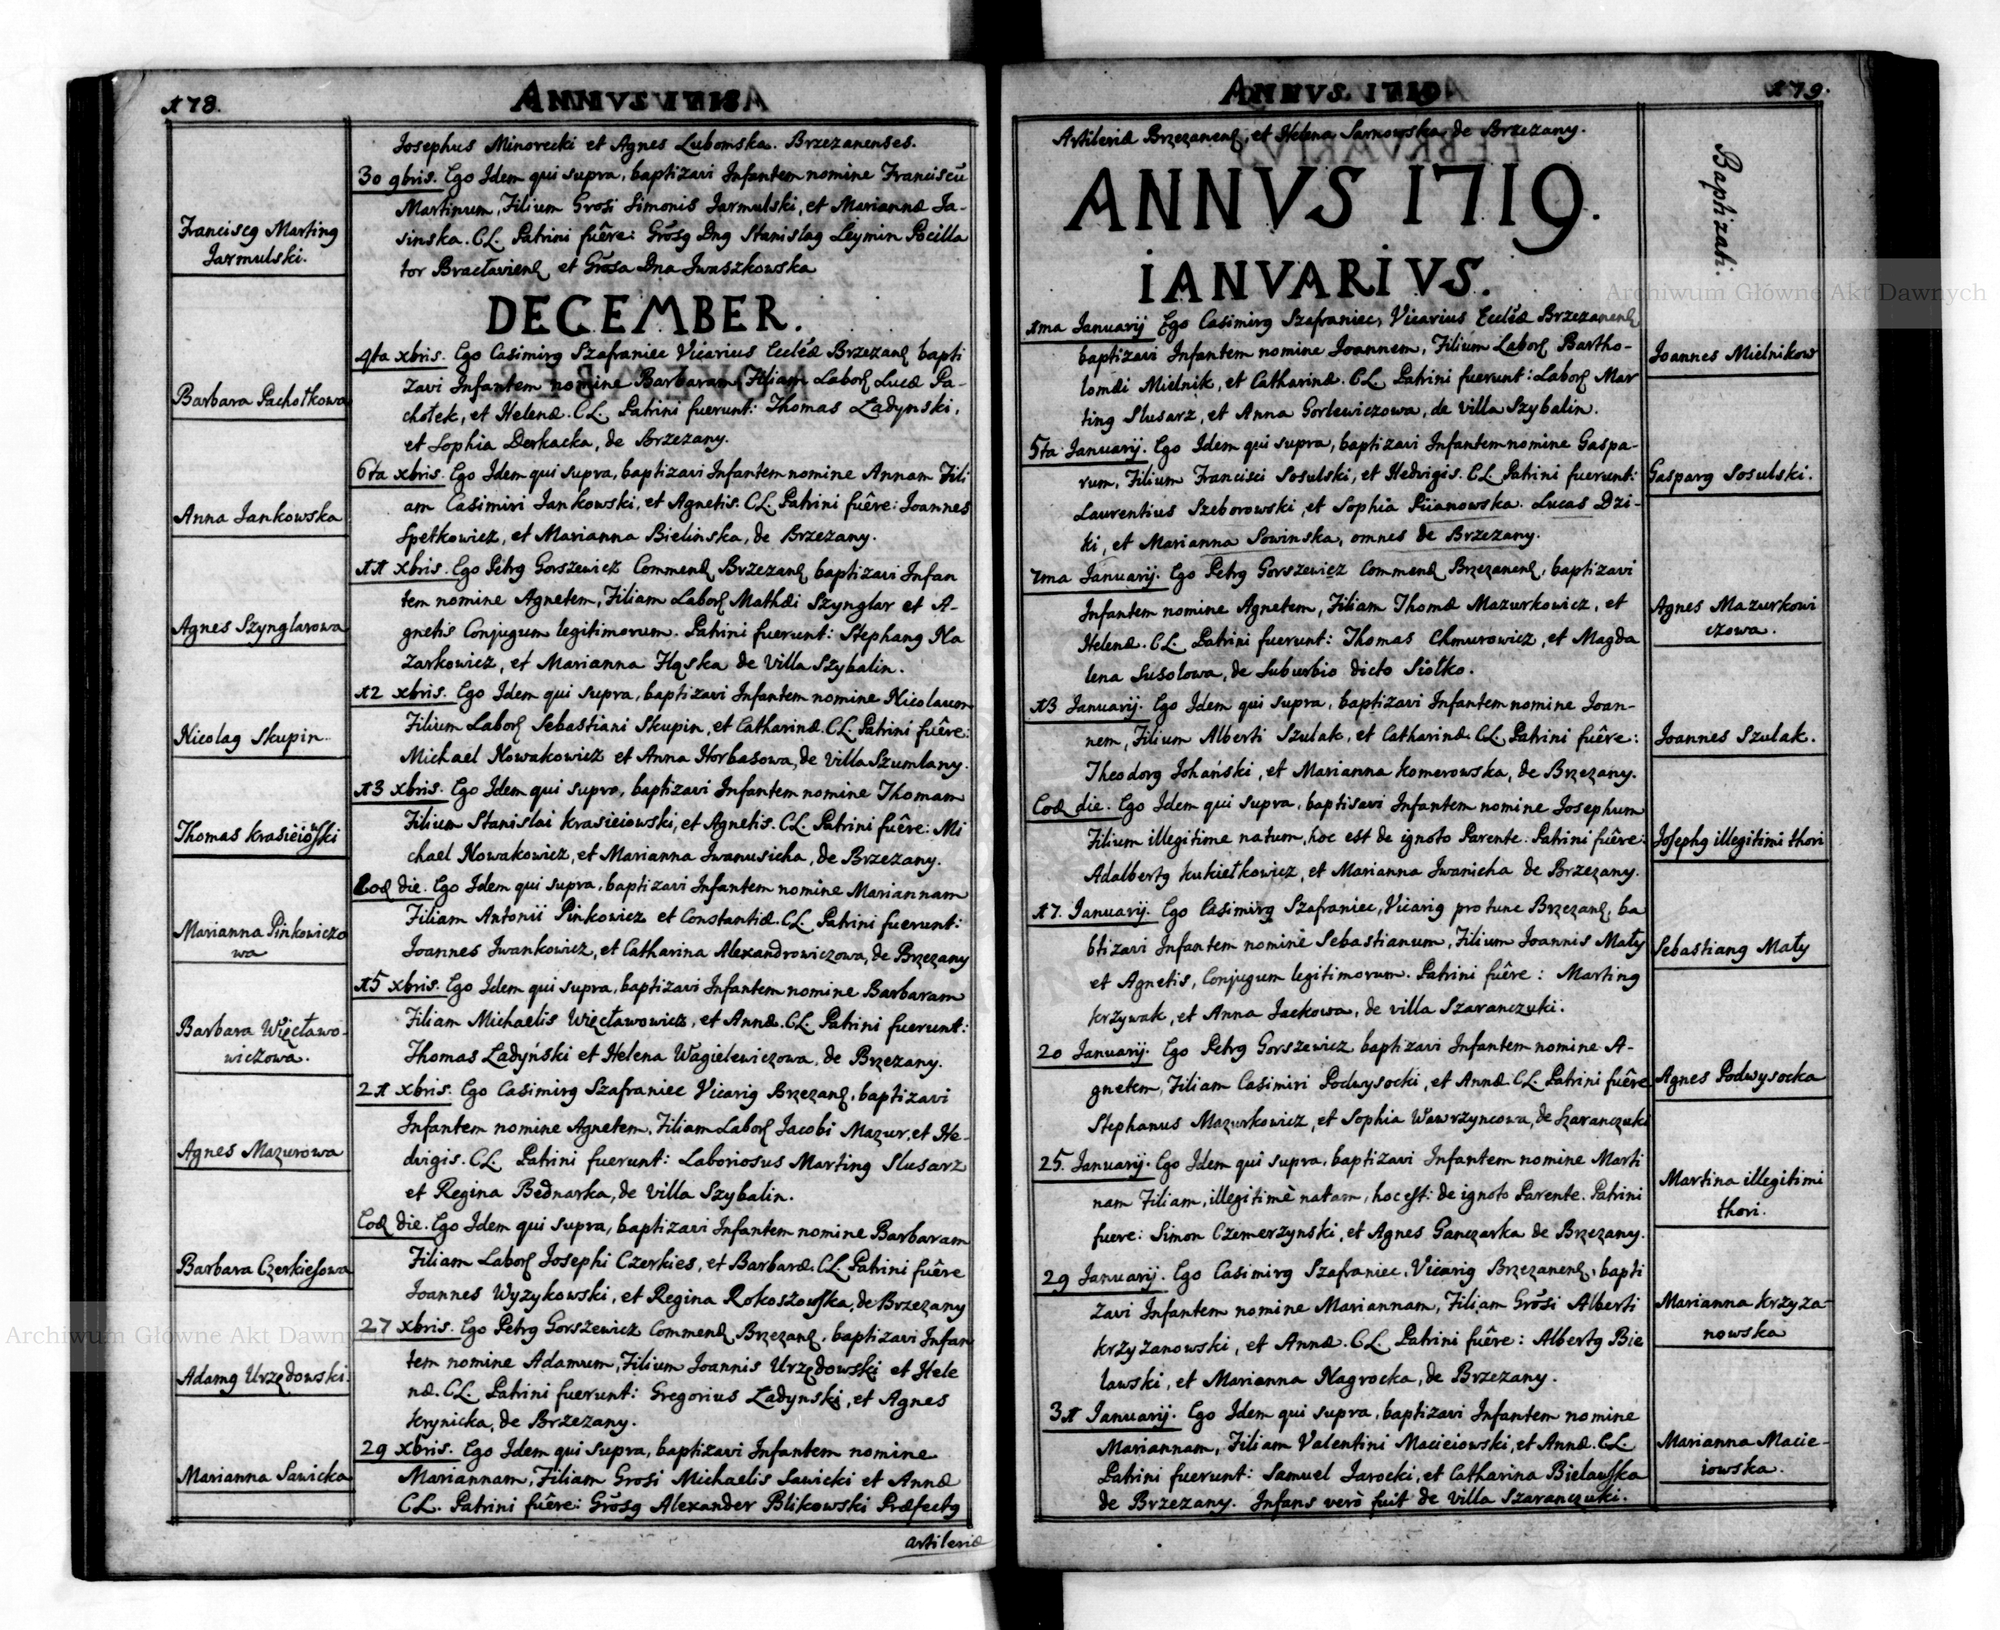 178.
ANNVS 1718
Josephus Minorecki et Agnes Lubomska. Brzezanenses.
30 9bris. Ego Idem qui supra, baptizavi Infantem nomine Franciscũ
Martinum, Filium Grosi Simonis Jarmulski, et Mariannæ Ja-
sinska. CL. Patrini fuêre: Grõsg Dng Stanislag Leymin Pocilla
tor Bracłavienẽ et Grõsa Dna Jwaszkowska
Franciscg Marting
Jarmulski.
DECEMBER.
4ta xbris. Ego Casimirg Szafraniec Vicarius Eccĺæ Brzezanẽ bapti
zavi Infantem nomine Barbaram Filiam Laborẽ Lucæ Pa-
chołek, et Helenæ. CL. Patrini fuerunt: Thomas Ładynski,
et Sophia Derkacka, de Brzezany.
Barbara Pachołkowa
6ta xbris. Ego Idem qui supra, baptizavi Infantem nomine Annam Fili
am Casimiri Jankowski, et Agnetis. CL. Patrini fuêre: Joannes
Spetkowicz, et Marianna Bielinska, de Brzezany.
Anna Jankowska
11 xbris. Ego Petrg Gorszewicz Commenẽ Brzezanẽ baptizavi Infan
tem nomine Agnetem, Filiam Laborẽ Mathæi Szynglar et A-
gnetis Conjugum legitimorum. Patrini fuerunt: Stephang Na
zarkowicz, et Marianna Hąska de Villa Szybalin.
Agnes Szynglarowa
12 xbris. Ego Idem qui supra, baptizavi Infantem nomine Nicolaum
Filium Laborẽ Sebastiani Skupin, et Catharinæ. CL. Patrini fuêre:
Michael Nowakowicz et Anna Horbasowa, de Villa Szumlany.
Nicolag Skupin
13 xbris. Ego Idem qui supra, baptizavi Infantem nomine Thomam
Filium Stanislai Krasieiowski, et Agnetis. CL. Patrini fuêre: Mi
chael Nowakowicz, et Marianna Jwanusicha, de Brzezany.
Thomas Krasieiowski
Eoḋ die. Ego Idem qui supra, baptizavi Infantem nomine Mariannam
Filiam Antonii Pinkowicz et Constantiæ. CL. Patrini fuerunt:
Joannes Jwankowicz, et Catharina Alexandrowiczowa, de Brzezany
Marianna Pinkowiczo
wa
15 xbris. Ego Idem qui supra, baptizavi Infantem nomine Barbaram
Filiam Michaelis Więcławowicz, et Annæ. CL. Patrini fuerunt:
Thomas Ładyński et Helena Wagielewiczowa, de Brzezany.
Barbara Więcławo-
wiczowa.
21 xbris. Ego Casimirg Szafraniec Vicarig Brzezanẽ, baptizavi
Infantem nomine Agnetem, Filiam Laborẽ Jacobi Mazur, et He-
dvigis. CL. Patrini fuerunt: Laboriosus Marting Slusarz
et Regina Bednarka, de Villa Szybalin.
Agnes Mazurowa
Eoḋ die. Ego Idem qui supra, baptizavi Infantem nomine Barbaram
Filiam Laborẽ Josephi Czerkies, et Barbaræ. CL. Patrini fuêre
Joannes Wyzykowski, et Regina Rokoszowska, de Brzezany
Barbara Czerkiesowa
27 xbris. Ego Petrg Gorszewicz Commenẽ Brzezanẽ, baptizavi Infan
tem nomine Adamum, Filium Joannis Urzędowski et Hele
næ. CL. Patrini fuerunt: Gregorius Ładynski, et Agnes
Krynicka, de Brzezany.
Adamg Urzędowski.
29 xbris. Ego Idem qui supra, baptizavi Infantem nomine
Mariannam, Filiam Grosi Michaelis Sawicki et Annæ
CL. Patrini fuêre: Grõsg Alexander Blikowski Præfectg
Marianna Sawicka
artileriæ
ANNVS. 1719
179.
Artileriæ Brzezanenẽ, et Helena Sarnowska de Brzezany.
Baptizati.
ANNVS 1719.
IANVARIVS.
1ma Januarij Ego Casimirg Szafraniec, Vicarius Eccĺæ Brzezanenẽ
baptizavi Infantem nomine Joannem, Filium Laborẽ Bartho-
lomæi Mielnik, et Catharinæ. CL. Patrini fuerunt: Laborẽ Mar
ting Slusarz, et Anna Gorlewiczowa, de villa Szybalin.
Joannes Mielnikow
5ta Januarij. Ego Idem qui supra, baptizavi Infantem nomine Gaspa-
rum, Filium Francisci Sosulski, et Hedvigis. CL. Patrini fuerunt:
Laurentius Szeborowski, et Sophia Piianowska. Lucas Dzi-
ki, et Marianna Sowinska, omnes de Brzezany.
Gasparg Sosulski.
7ma Januarij. Ego Petrg Gorszewicz Commenẽ Brzezanenẽ, baptizavi
Infantem nomine Agnetem, Filiam Thomæ Mazurkowicz, et
Helenæ. CL. Patrini fuerunt: Thomas Chmurowicz, et Magda
lena Susolowa, de Suburbio dicto Siołko.
Agnes Mazurkowi
czowa.
13 Januarij. Ego Idem qui supra, baptizavi Infantem nomine Joan-
nem, Filium Alberti Szulak, et Catharinæ CL. Patrini fuêre:
Theodorg Johański, et Marianna Komerowska, de Brzezany.
Joannes Szulak.
Eoḋ die. Ego Idem qui supra, baptisavi Infantem nomine Josephum
Filium illegitime natum, hoc est de ignoto Parente. Patrini fuêre:
Adalbertg Kukiełkowicz, et Marianna Jwanicha de Brzezany.
Josephg illegitimi thori
17. Januarij. Ego Casimirg Szafraniec, Vicarig pro tunc Brzezanẽ, ba
btizavi Infantem nomine Sebastianum, Filium Joannis Mały
et Agnetis, Conjugum legitimorum. Patrini fuêre: Marting
Krzywak, et Anna Jackowa, de villa Szaranczuki.
Sebastiang Mały
20 Januarij. Ego Petrg Gorszewicz baptizavi Infantem nomine A-
gnetem, Filiam Casimiri Podwysocki, et Annæ. CL. Patrini fuêre
Stephanus Mazurkowicz, et Sophia Wawrzyncowa, de Szaranczuki
Agnes Podwysocka
25. Januarij. Ego Idem qui supra, baptizavi Infantem nomine Marti
nam Filiam, illegitimè natam, hoc est: de ignoto Parente. Patrini
fuere: Simon Czemerzynski, et Agnes Ganczarka de Brzezany.
Martina illegitimi
thori.
29 Januarij. Ego Casimirg Szafraniec, Vicarig Brzezanenẽ, bapti
zavi Infantem nomine Mariannam, Filiam Grõsi Alberti
Krzyzanowski, et Annæ. CL. Patrini fuêre: Albertg Bie
lawski, et Marianna Nagrocka, de Brzezany.
Marianna Krzyza-
nowska
31 Januarij. Ego Idem qui supra, baptizavi Infantem nomine
Mariannam, Filiam Valentini Macieiowski, et Annæ. CL.
Patrini fuerunt: Samuel Jarocki, et Catharina Bielawska
de Brzezany. Infans verò fuit de villa Szaranczuki.
Marianna Macie-
iowska.
Archiwum Główne Akt Dawnych
Archiwum Główne Akt Dawnych